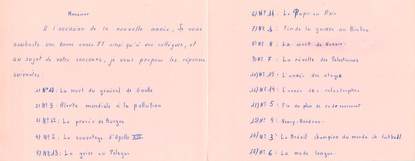 Monsieur
A l'occasion de la nouvelle année, je vous
souhaite une bonne année et ainsi qu'à vos collègues, et
au sujet de votre concours, je vous propose les réponses
suivantes :
1) N°10 : La mort du général de Gaulle
2) N°3 : Alerte mondiale à la pollution
3) N°12 : Le procès de Burgos
4) N°2 : Le sauvetage d'Apollo XIII
5) N°13 : La grève en Pologne
6) N°11 : Le Pape en Asie
7) N°1 : Fin de la guerre au Biafra
8) N°8 : La mort de Nasser
9) N°7 : La révolte des Palestiniens
10) N°15 : L'année des otages
11) N°14 : L'année des catastrophes
12) N°5 :
13) N°9 :
14) N°3 : Le Brésil champion du monde de football
15) N°6 : La mode longue